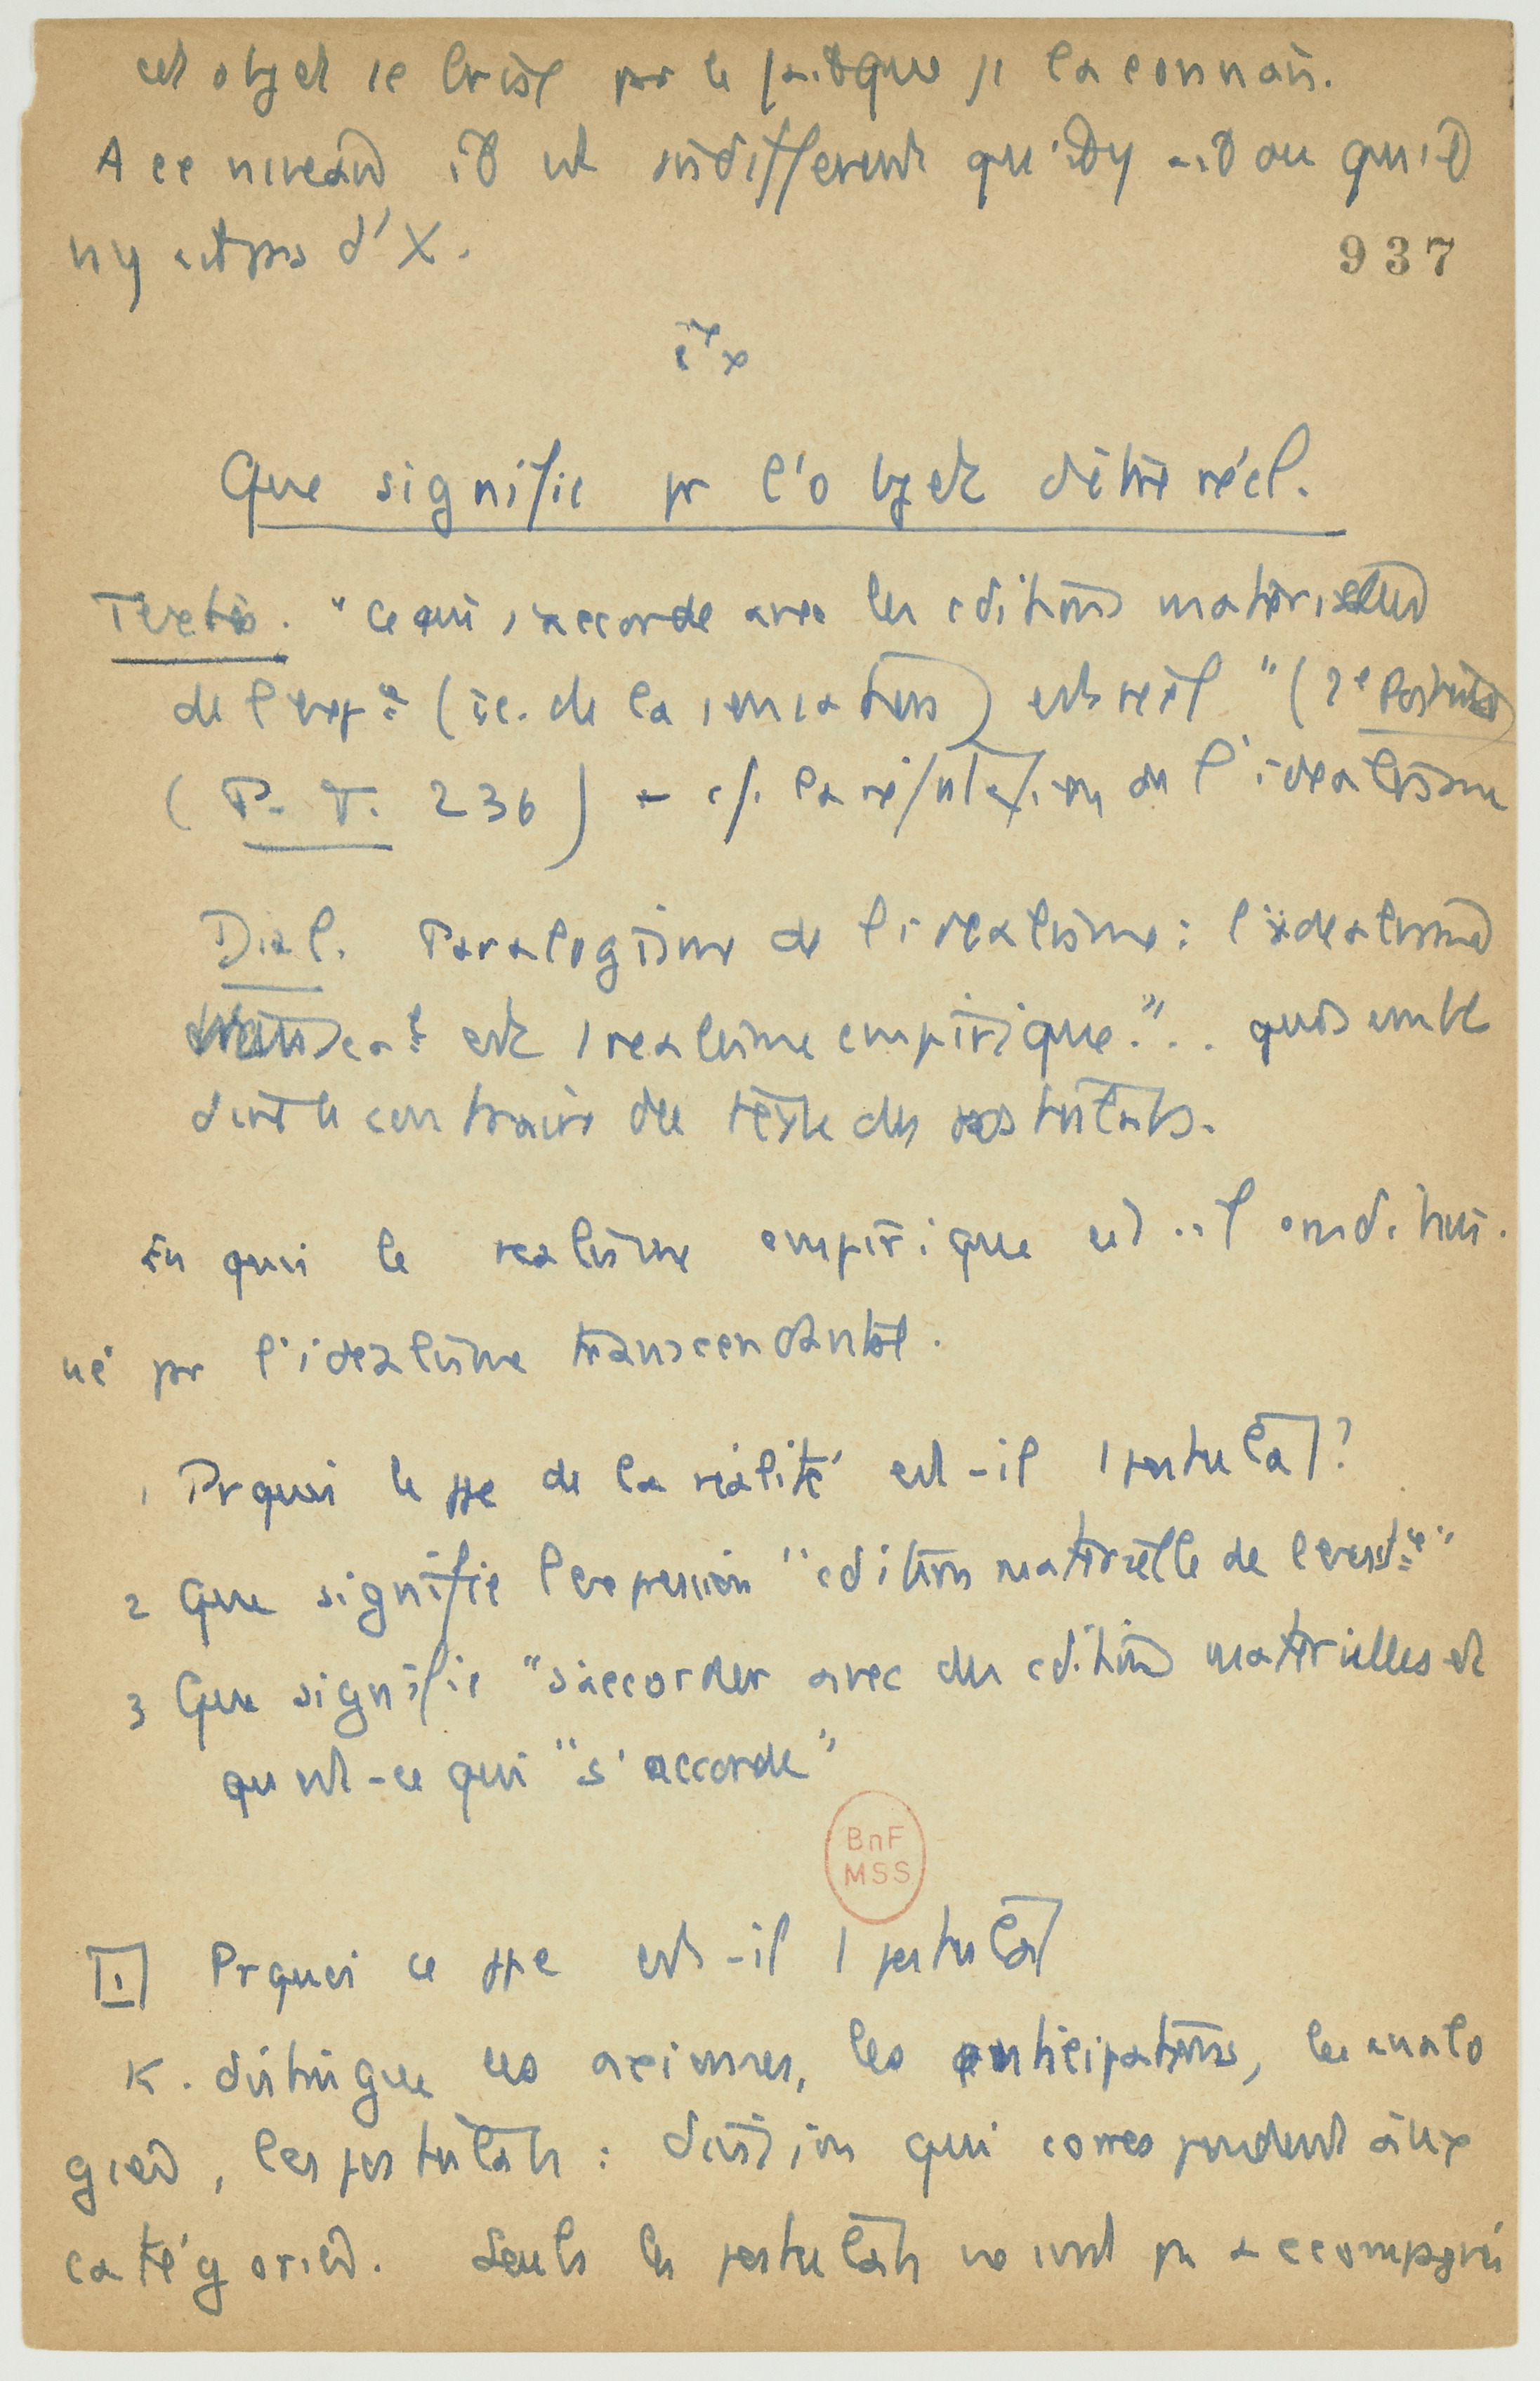 cet objet se brise par le fait que je la connais.
A ce niveau il est indifferent qu'il y ait ou qu'il
n'y ait pas d'X.
937
x x x
Que signifie pr l'objet d'être réel.
Textes. "Ce qui s'accorde avec les cditions matérielles
de l'exp.ce (ie. de la sensation) est réel" (2e Postulat)
(P. T. 236) - cf. la réfutation de l'idealisme
Dial. Paralogisme de l'idealisme : l'idealisme
transcal est 1 realisme empirique."... qui semble
dire le contraire du texte des postulats.
En quoi le realisme empirique est-il condition-
né par l'idealisme transcendantal.
1 Prquoi le ppe de la réalité est-il 1 postulat?
2 Que signifie l'expression "cdition matérielle de l'existce"
3 Que signifie "s'accorder avec des cditions matérielles et
qu'est-ce qui "s'accorde"
BnF
MSS
1 Prquoi ce ppe est-il 1 postulat
K. distingue les axiomes, les anticipations, les analo
gies, les postulats : division qui correspondent aux
catégories. Seuls les postulats ne sont pas accompagnés